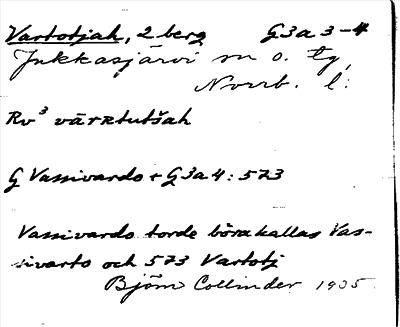 Vartotjah, 2 berg G3a 3-4
Jukkasjärvi sn o. tg,
Norrb. l:
Rv³ vārᴢtutšah
G Vassivardo + G3a4: 573
Vassivardo torde böra kallas Vas-
sivarto och 573 Vartotj
Björn Collinder 1935